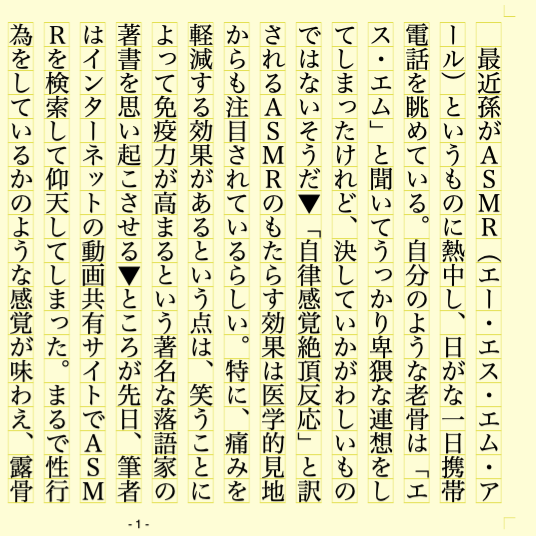 最近孫がＡＳＭＲ（エー・エス・エム・ア
ール）というものに熱中し、日がな一日携帯
電話を眺めている。自分のような老骨は「エ
ス・エム」と聞いてうっかり卑猥な連想をし
てしまったけれど、決していかがわしいもの
ではないそうだ▼「自律感覚絶頂反応」と訳
されるＡＳＭＲのもたらす効果は医学的見地
からも注目されているらしい。特に、痛みを
軽減する効果があるという点は、笑うことに
よって免疫力が高まるという著名な落語家の
著書を思い起こさせる▼ところが先日、筆者
はインターネットの動画共有サイトでＡＳＭ
Ｒを検索して仰天してしまった。まるで性行
為をしているかのような感覚が味わえ、露骨
- 1 -